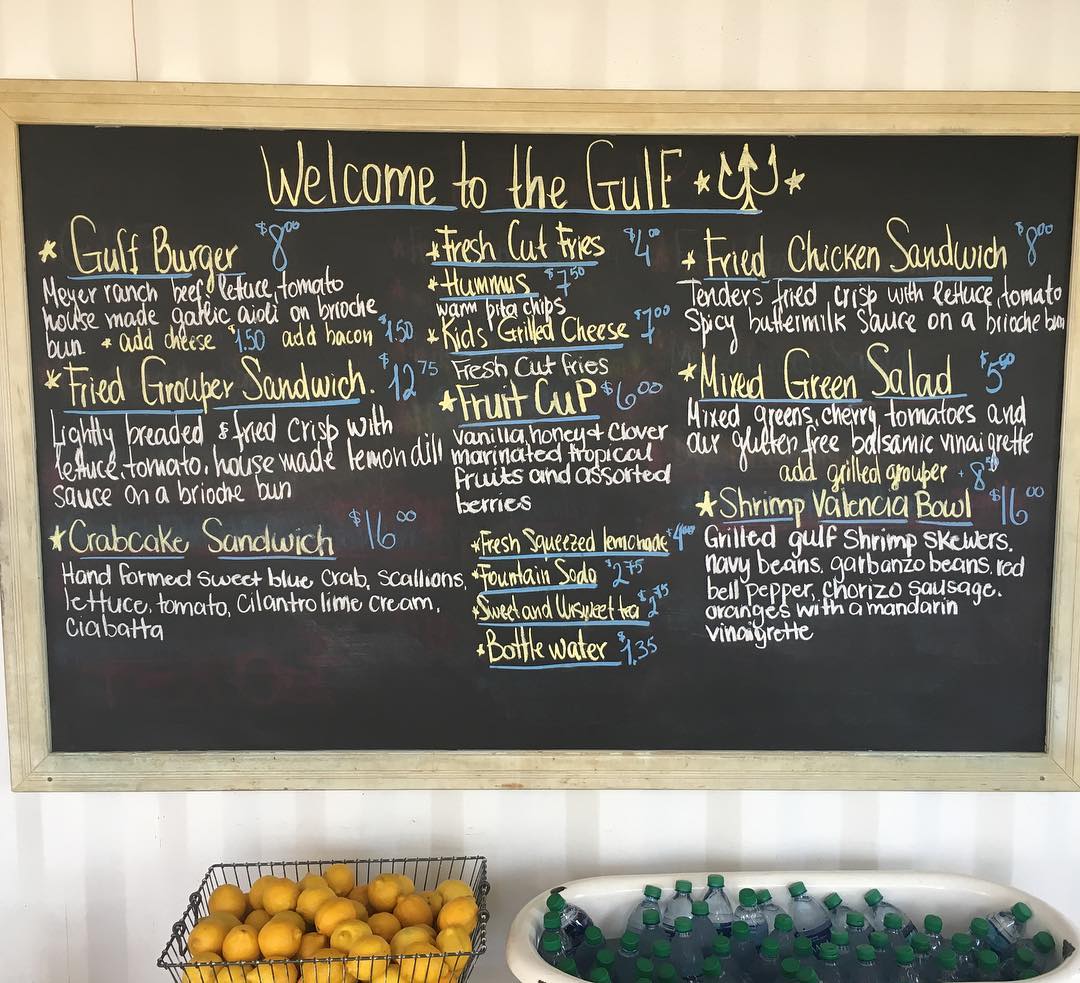 Welcome to the Gulf
Gulf Burger $8.00
Meyer ranch beef, lettuce, tomato
house made garlic aioli on brioche
bun * add cheese $1.50 add bacon $1.50
Fried Grouper Sandwich. $12.75
Lightly breaded & fried crisp with
lettuce, tomato, house made lemon dill
sauce on a brioche bun
Crabcake Sandwich $16.00
Hand formed sweet blue crab, scallions,
lettuce, tomato, cilantro lime cream,
ciabatta
Fresh Cut Fries $4.00
Hummus $7.50
warm pita chips
Kids' Grilled Cheese $7.00
Fresh Cut Fries
Fruit Cup $6.00
vanilla, honey & clover
marinated tropical
fruits and assorted
berries
Fresh Squeezed lemonade $4.00
Fountain Soda $2.75
Sweet and Unsweet tea $2.75
Bottle water $1.35
Fried Chicken Sandwich $8.00
Tenders fried crisp with lettuce, tomato
Spicy buttermilk sauce on a brioche bun
Mixed Green Salad $5.50
Mixed greens, cherry tomatoes and
our gluten free balsamic vinaigrette
add grilled grouper + 8.50
Shrimp Valencia Bowl $16.00
Grilled gulf shrimp skewers,
navy beans, garbanzo beans, red
bell pepper, chorizo sausage,
oranges with a mandarin
vinaigrette